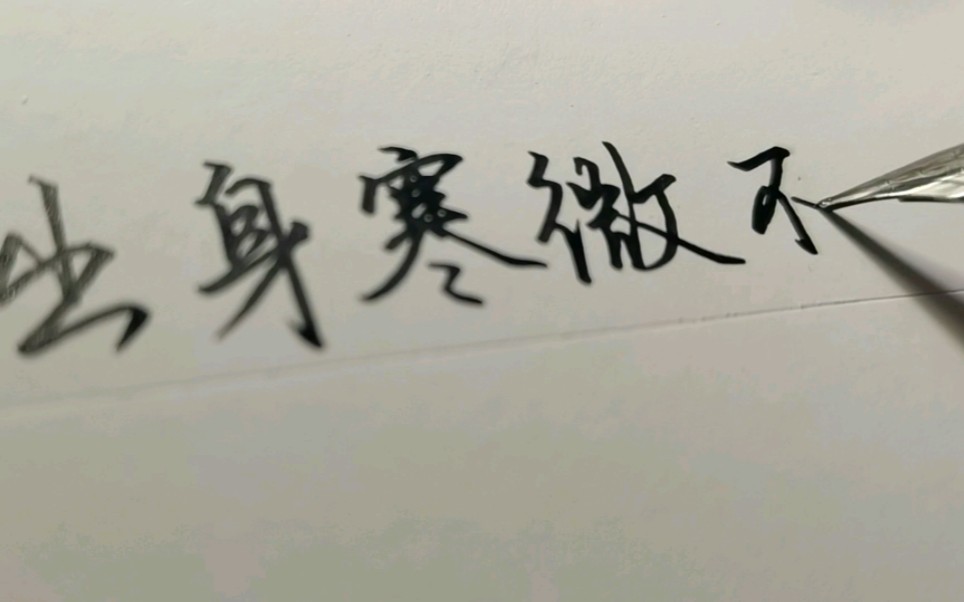 出身寒微不